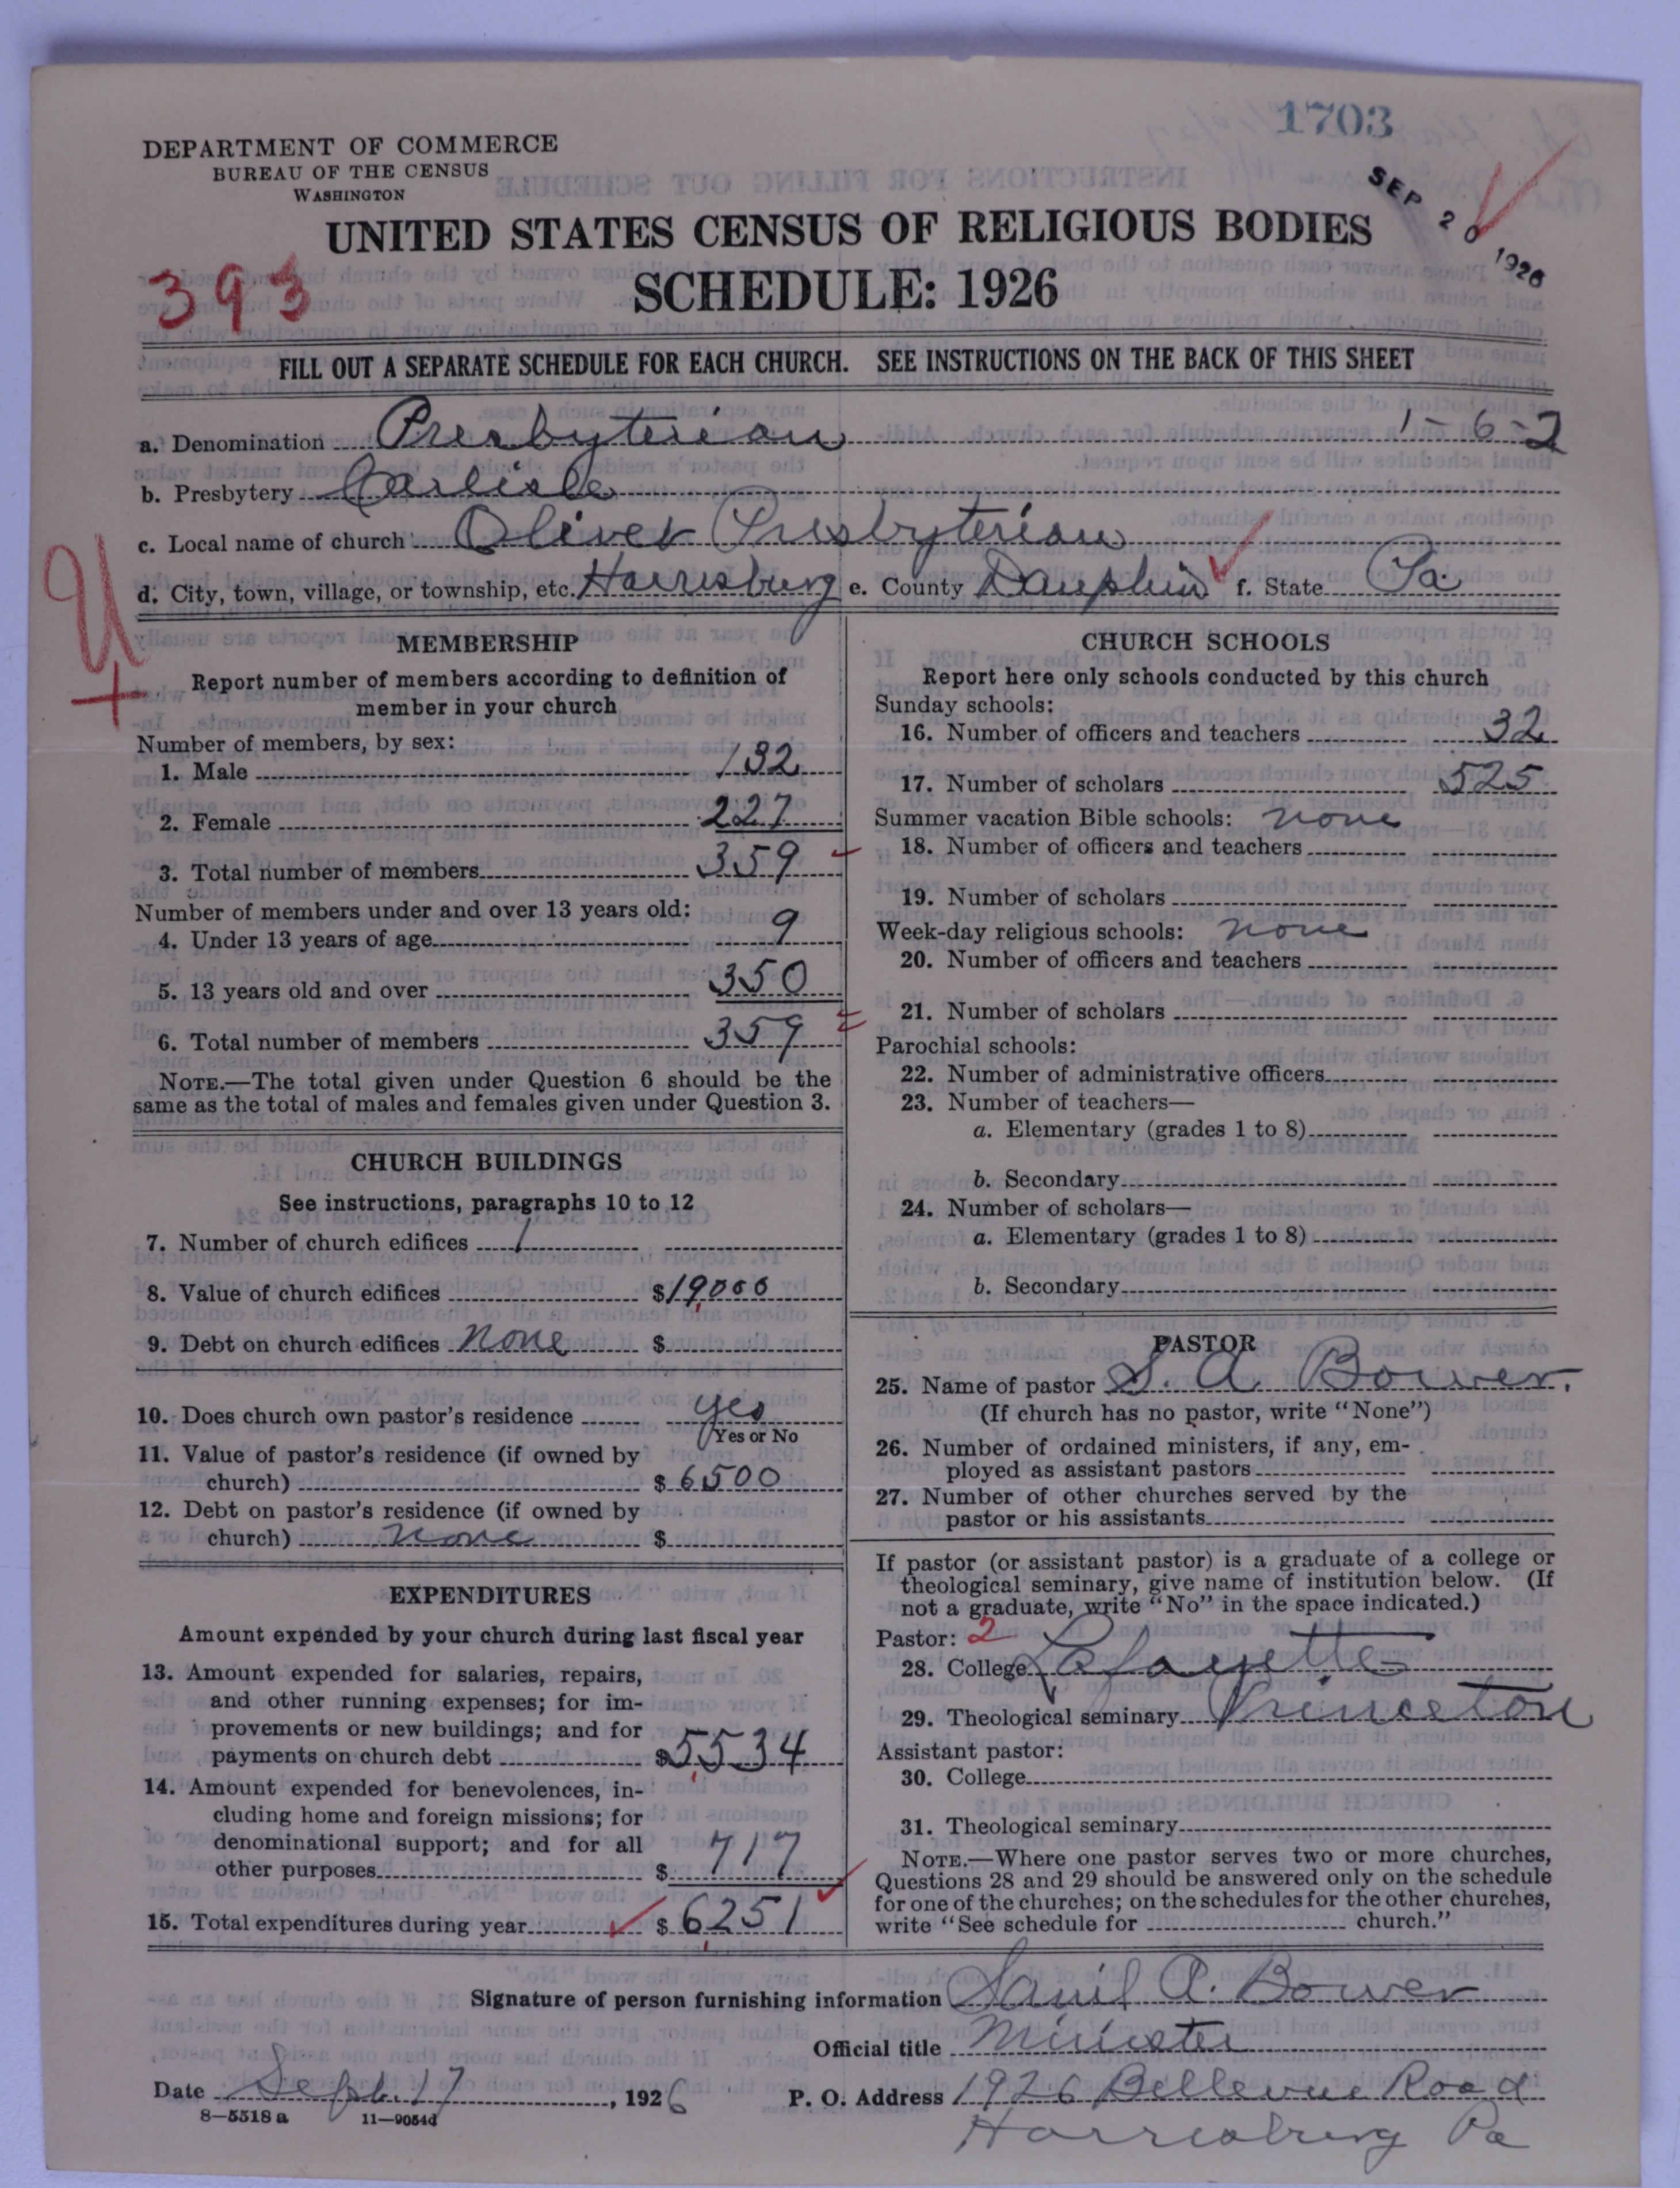 1703
SEP 20 1926
DEPARTMENT OF COMMERCE
BUREAU OF THE CENSUS
WASHINGTON
UNITED STATES CENSUS OF RELIGIOUS BODIES
SCHEDULE: 1926
393
FILL OUT A SEPARATE SCHEDULE FOR EACH CHURCH. SEE INSTRUCTIONS ON THE BACK OF THIS SHEET
a. Denomination Presbyterian 1-6-2
b. Presbytery Carlisle
c. Local name of church Olivet Presbyterian
d. City, town, village, or township, etc. Harrisburg e. County Dauphin f. State Pa.
MEMBERSHIP
Report number of members according to definition of
member in your church
Number of members, by sex:
1. Male 132
2. Female 227
3. Total number of members 359
Number of members under and over 13 years old:
4. Under 13 years of age 9
5. 13 years old and over 350
6. Total number of members 359
NOTE.—The total given under Question 6 should be the
same as the total of males and females given under Question 3.
CHURCH BUILDINGS
See instructions, paragraphs 10 to 12
7. Number of church edifices 1
8. Value of church edifices $19,000
9. Debt on church edifices None $
10. Does church own pastor's residence yes
Yes or No
11. Value of pastor's residence (if owned by
church) $6500
12. Debt on pastor's residence (if owned by
church) none $
EXPENDITURES
Amount expended by your church during last fiscal year
13. Amount expended for salaries, repairs,
and other running expenses; for im-
provements or new buildings; and for
payments on church debt $5,534
14. Amount expended for benevolences, in-
cluding home and foreign missions; for
denominational support; and for all
other purposes $717
15. Total expenditures during year $6,251
CHURCH SCHOOLS
Report here only schools conducted by this church
Sunday schools:
16. Number of officers and teachers 32
17. Number of scholars 525
Summer vacation Bible schools: none
18. Number of officers and teachers
19. Number of scholars
Week-day religious schools: none
20. Number of officers and teachers
21. Number of scholars
Parochial schools:
22. Number of administrative officers
23. Number of teachers—
a. Elementary (grades 1 to 8)
b. Secondary
24. Number of scholars—
a. Elementary (grades 1 to 8)
b. Secondary
PASTOR
25. Name of pastor S. A. Bower.
(If church has no pastor, write "None")
26. Number of ordained ministers, if any, em-
ployed as assistant pastors
27. Number of other churches served by the
pastor or his assistants
If pastor (or assistant pastor) is a graduate of a college or
theological seminary, give name of institution below. (If
not a graduate, write "No" in the space indicated.)
Pastor: 2
28. College Lafayette
29. Theological seminary Princeton
Assistant pastor:
30. College
31. Theological seminary
NOTE.—Where one pastor serves two or more churches,
Questions 28 and 29 should be answered only on the schedule
for one of the churches; on the schedules for the other churches,
write "See schedule for church."
Signature of person furnishing information Saml A. Bower
Official title Minister
Date Sept. 17, 1926 P. O. Address 1926 Bellevue Road
8—5518a 11—9054d
Harrisburg Pa